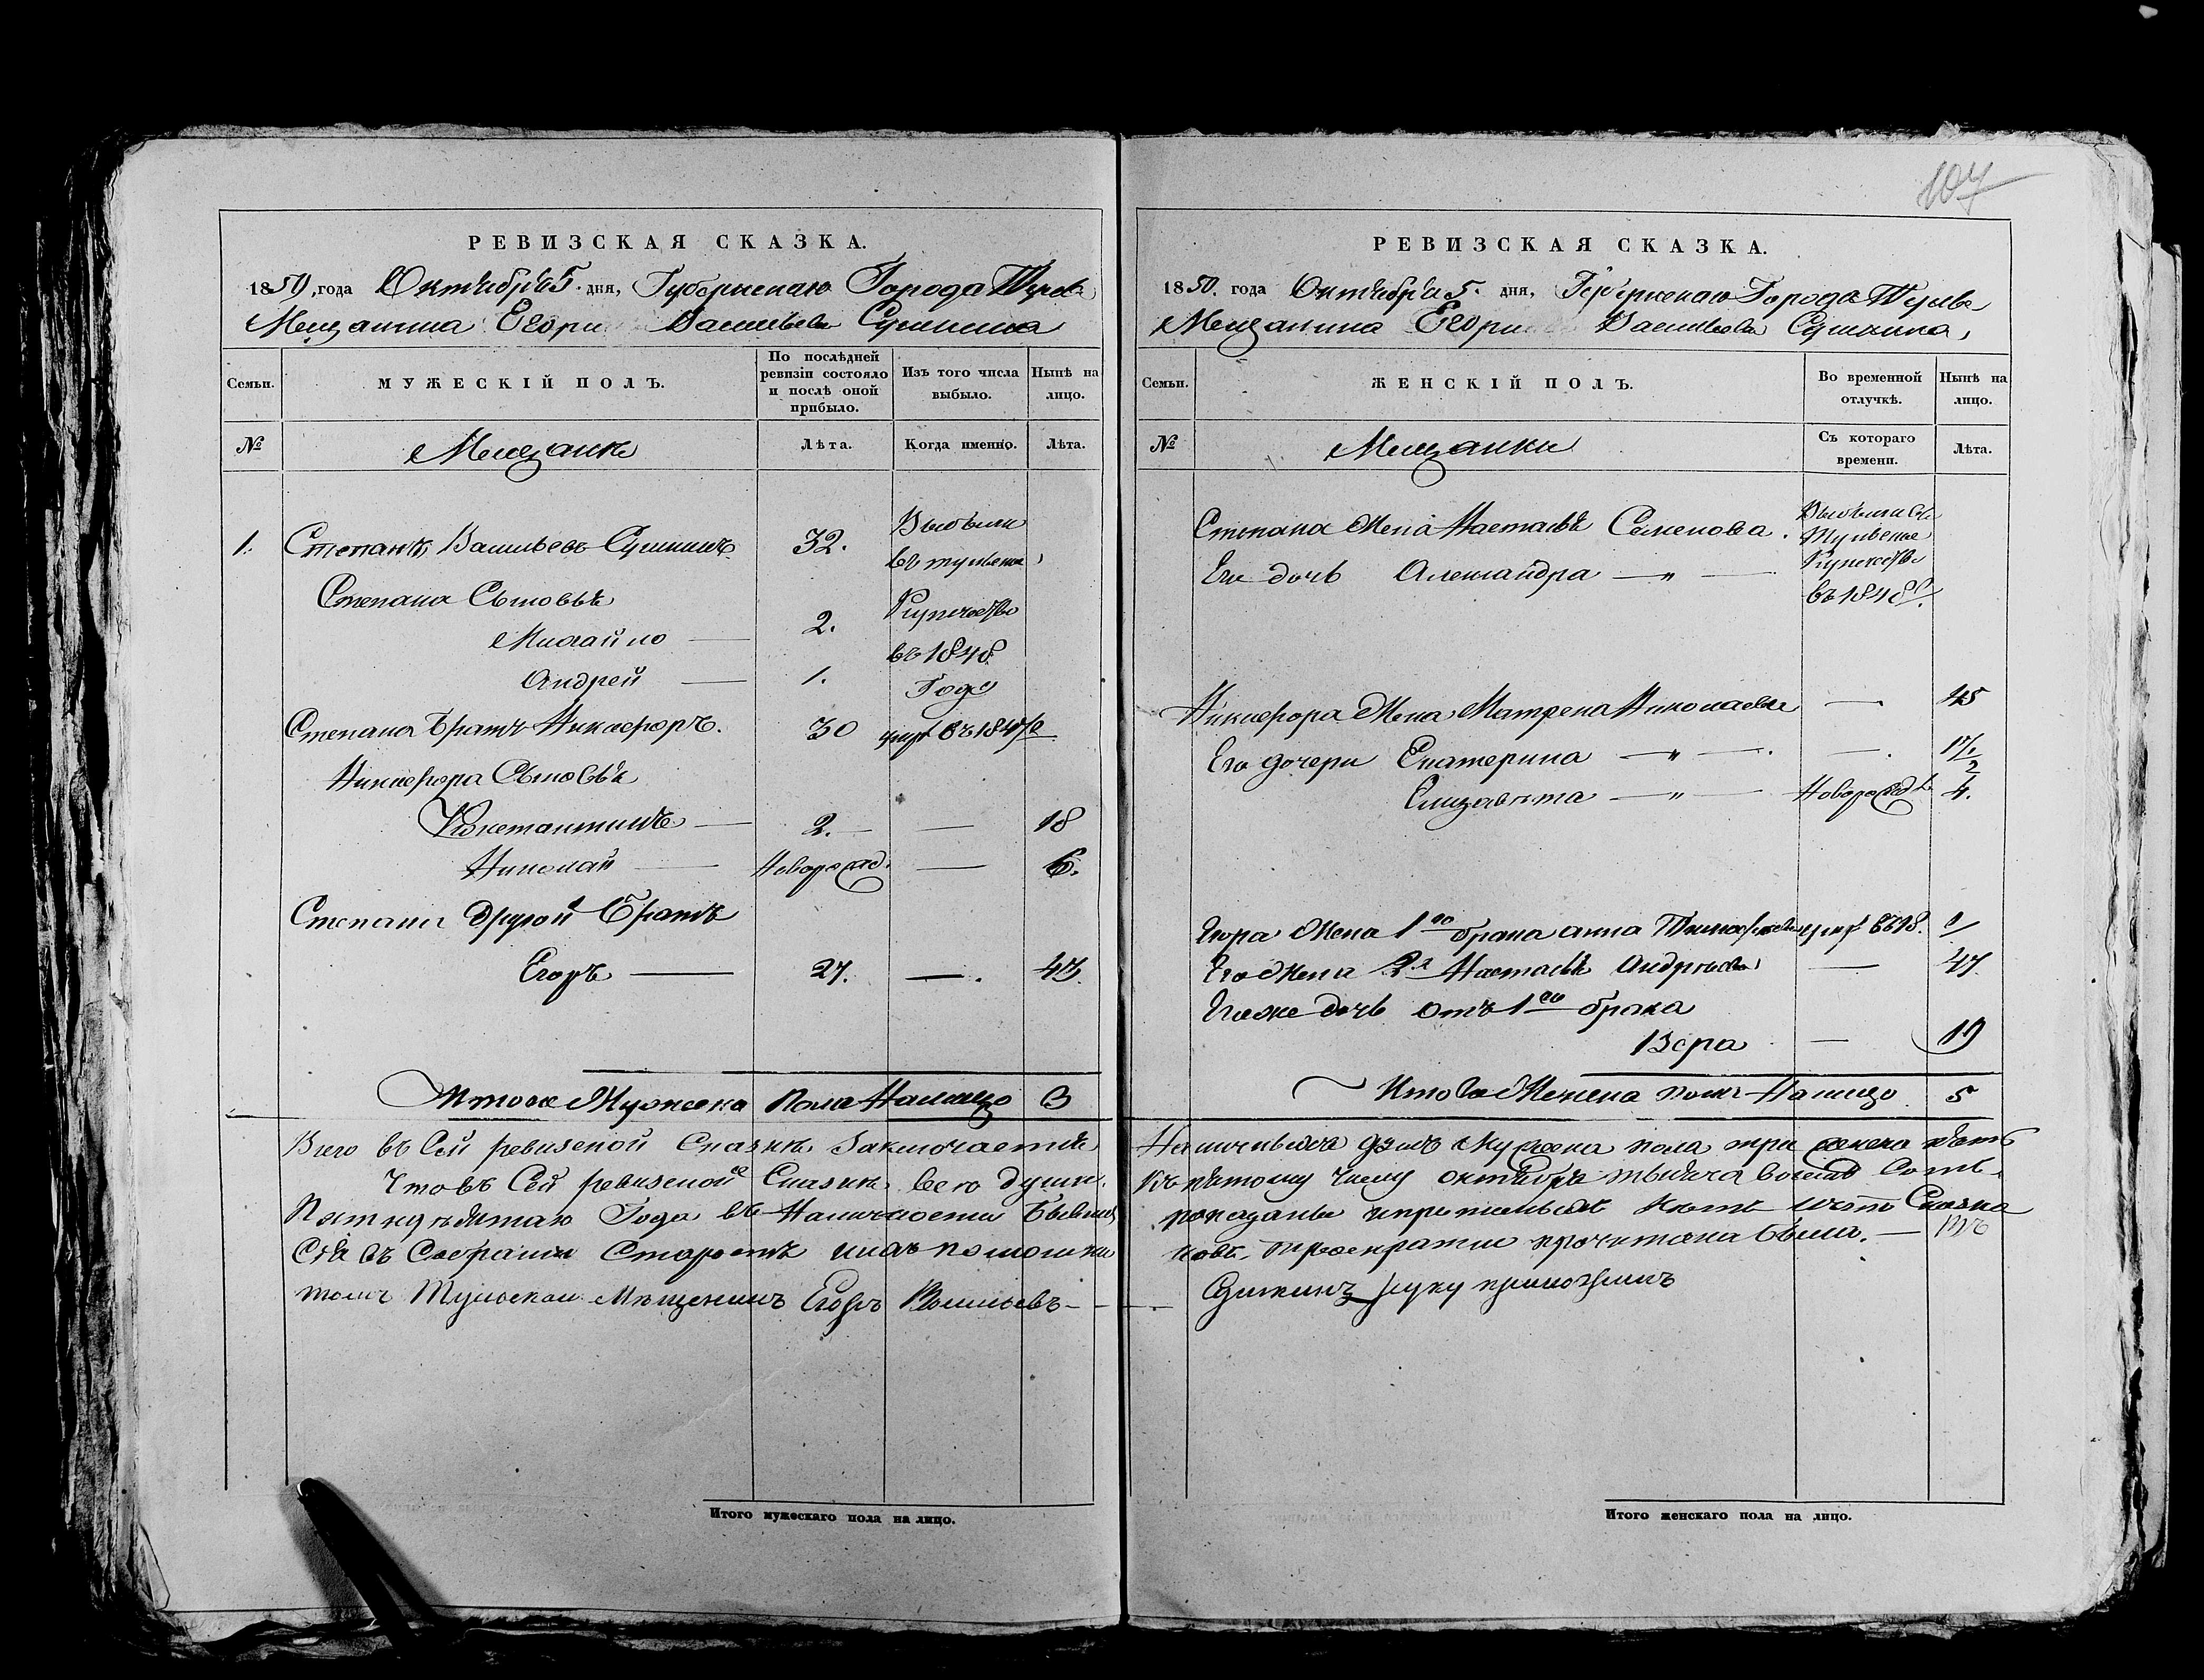 107
РЕВИЗСКАЯ СКАЗКА.
1850, года Октября 5. дня, Губернскаго Города Тулы
Мещанина Егора Васильева Сушкина
Семьи.
МУЖЕСКІЙ ПОЛЪ.
По послѣдней ревизіи состояло и послѣ оной прибыло.
Изъ того числа выбыло.
Нынѣ на лицо.
№
Мещане
Лѣта.
Когда именно.
Лѣта.
1. Степанъ Васильевъ Сушкинъ 32. Выбыли
въ тульское
Степана Сыновья
Михайло — 2. Купечество
въ 1848
Андрей — 1. Году
Степана Братъ Никифоръ. 30
Никифора Сыновья
Константинъ — 2. — — 18
Николай — Новорожд. — 6.
Степана Другой Братъ
Егоръ — 27. — 43
Итого Мужеска пола Налицо 3
Всего въ Сей ревизской Сказке Заключается
Что въ Сей ревизской Сказке все души
Пятидесятаго Года въ Наличности Бывшия
Сія въ Собрании Старостъ
Тульской Мѣщенинъ Егоръ Васильевъ-
Итого мужескаго пола на лицо.
РЕВИЗСКАЯ СКАЗКА.
1850. года Октября 5. дня, Губернскаго Города Тулы
Мещанина Егора Васильева Сушкина,
Семьи.
ЖЕНСКІЙ ПОЛЪ.
Во временной отлучкѣ.
Нынѣ на лицо.
№
Мещанки
Съ котораго времени.
Лѣта.
Степана Жена Настасья Семенова. Выбыли въ
Тульское
Его дочь Александра — " — Купечество
въ 1848 г.
Никифора Жена Матрена Николаева — 45
Его дочери Екатерина — " — . — . 17 1/2
Елизавета — " — Новорожд. 4.
Егора Жена 1го брака анна
Его Жена 2я Настасья Андреева — 47.
Егоже дочь отъ 1го брака
Вера — 19
Итого Женска пола Налицо 5
Наличныхъ душъ Мужеска пола три женска пять
Къ пятому числу октября тысяча восемь Сотъ
показаны и прописныхъ нетъ Сказка
троекратно прочитана была. —
Сушкинъ руку приложилъ
Итого женскаго пола на лицо.